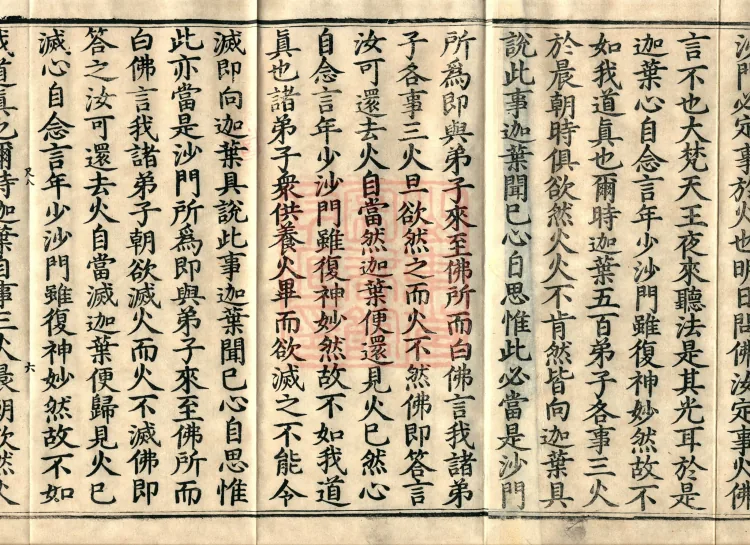 沙門必定事於火也明日問佛汝定事火佛
言不也大梵天王夜來聽法是其光耳於是
迦葉心自念言年少沙門雖復神妙然故不
如我道眞也爾時迦葉五百弟子各事三火
於晨朝時俱欲然火火不肯然皆向迦葉具
說此事迦葉聞已心自思惟此必當是沙門
所爲即與弟子來至佛所而白佛言我諸弟
子各事三火旦欲然之而火不然佛即答言
汝可還去火自當然迦葉便還見火已然心
自念言年少沙門雖復神妙然故不如我道
眞也諸弟子衆供養火畢而欲滅之不能令
滅即向迦葉具說此事迦葉聞已心自思惟
此亦當是沙門所爲即與弟子來至佛所而
白佛言我諸弟子朝欲滅火而火不滅佛即
答之汝可還去火自當滅迦葉便歸見火已
滅心自念言年少沙門雖復神妙然故不如
尺八 六
我道眞也爾時迦葉自事三火晨朝欲然火